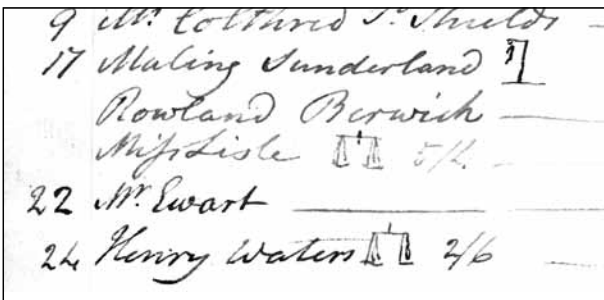 9 Mr. Colthred So. Shields
17 Maling Sunderland
Rowland Berwick
Miss Lisle 5/2.
22 Mr. Ewart
24 Henry Waters 2/6